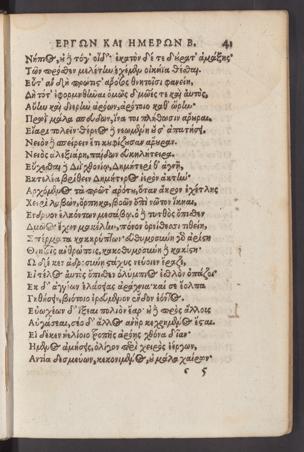 ΕΡΓΩΝ ΚΑΙ ΗΜΕΡΩΝ Β. 41
Νήπιος, οὐδὲ τόγ' οἶδ'· ἑκατὸν δέ τε δούρατ' ἁμάξης
Τῶν πρόσθεν μελέτην ἐχέμεν οἰκήϊα θέσθαι.
Εὖτ' ἂν δὴ πρώτιστ' ἄροτος θνητοῖσι φανείη,
Δὴ τότ' ἐφορμηθῆναι ὁμῶς δμῶές τε καὶ αὐτὸς,
Αὔην καὶ διερὴν ἀρόων, ἀρότοιο καθ' ὥρην
Πρωῒ μάλα σπεύδων, ἵνα τοι πλήθωσιν ἄρουραι.
Εἴαρι πολεῖν· θέρεος δὲ νεωμένη οὔ σ' ἀπατήσει.
Νειὸν δὲ σπείρειν ἔτι κουφίζουσαν ἄρουραν.
Νειὸς ἀλεξιάρη, παίδων εὐκηλήτειρα.
Εὔχεσθαι δὲ Διῒ χθονίῳ, Δημήτερί θ' ἁγνῇ,
Ἐκτελέα βρίθειν Δημήτερος ἱερὸν ἀκτήν
Ἀρχόμενος τὰ πρῶτ' ἀρότου, ὅταν ἄκρον ἐχέτλης
Χειρὶ λαβών, ὅρπηκα, βοῶν ἐπὶ νῶτον ἵκηαι,
Ἔνδρυον ἑλκόντων μεσάβῳ. ὁ δὲ τυτθὸς ὄπισθεν
Δμῶος ἔχων μακέλην, πόνον ὀρνίθεσσι τιθείη,
Σπέρματα κακκρύπτων· εὐθημοσύνη γὰρ ἀρίστη
Θνητοῖς ἀνθρώποις, κακοθημοσύνη δὲ κακίστη.
Ὧδέ κεν ἁδροσύνῃ στάχυες νεύοιεν ἔραζε,
Εἰ τέλος αὐτὸς ὄπισθεν ὀλύμπιος ἐσθλὸν ὀπάζοι
Ἐκ δ' ἀγγέων ἐλάσειας ἀράχνια· καί σε ἔολπα
Γηθήσειν, βιότοιο ἐρεύμενον ἔνδον ἐόντος.
Εὐοχέων δ' ἵξεαι πολιὸν ἔαρ· οὐδὲ πρὸς ἄλλους
Αὐγάσεαι, σέο δ' ἄλλος ἀνὴρ κεχρημένος ἔσται.
Εἰ δέ κεν ἠελίοιο τροπῇς ἀρόῃς χθόνα δῖαν
Ἥμενος ἀμήσεις, ὀλίγον περὶ χειρὸς ἐέργων,
Ἀντία δεσμεύων, κεκονιμένος, οὐ μάλα χαίρων
c 5